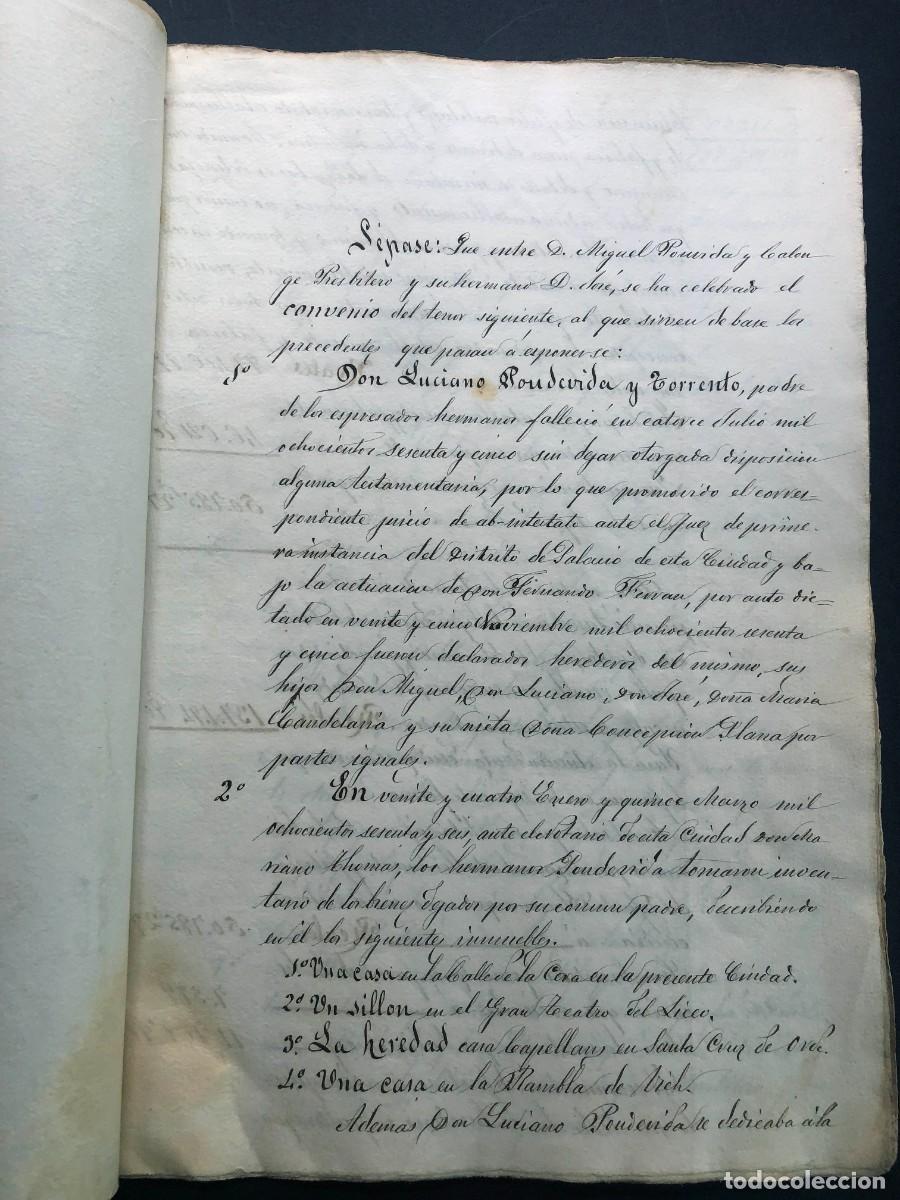 Sépase: Que entre D. Miguel Pondevida y Calon-
ge Presbítero y su hermano D. José, se ha celebrado el
convenio del tenor siguiente, al que sirven de base los
precedentes que pasan á esponerse:
1º Don Luciano Pondevida y Torrento, padre
de los espresados hermanos falleció en catorce Julio mil
ochocientos sesenta y cinco sin dejar otorgada disposicion
alguna testamentaria, por lo que promovido el corres-
pondiente juicio de ab-intestato ante el Juez de prime-
ra instancia del Distrito de Palacio de esta Ciudad y ba-
jo la actuacion de Don Fernando Ferran, por auto dic-
tado en veinte y cinco Noviembre mil ochocientos sesenta
y cinco fueron declarados herederos del mismo, sus
hijos Don Miguel, Don Luciano, Don José, Doña Maria
Candelaria y su nieta Doña Concepcion Plana por
partes iguales.
2º En veinte y cuatro Enero y quince Marzo mil
ochocientos sesenta y seis, ante el Notario de esta Ciudad Don Ma
riano Thomas, los hermanos Pondevida tomaron inven-
tario de los bienes dejados por su comun padre, describiendo
en él los siguientes inmuebles.
1º Una casa en la Calle de la Cera en la presente Ciudad.
2º Un sillon en el Gran Teatro del Liceo.
3º La heredad casa Capellans en Santa Cruz de
4º Una casa en la Rambla de Vich.
Además Don Luciano Pondevida se dedicaba á la
todocoleccion